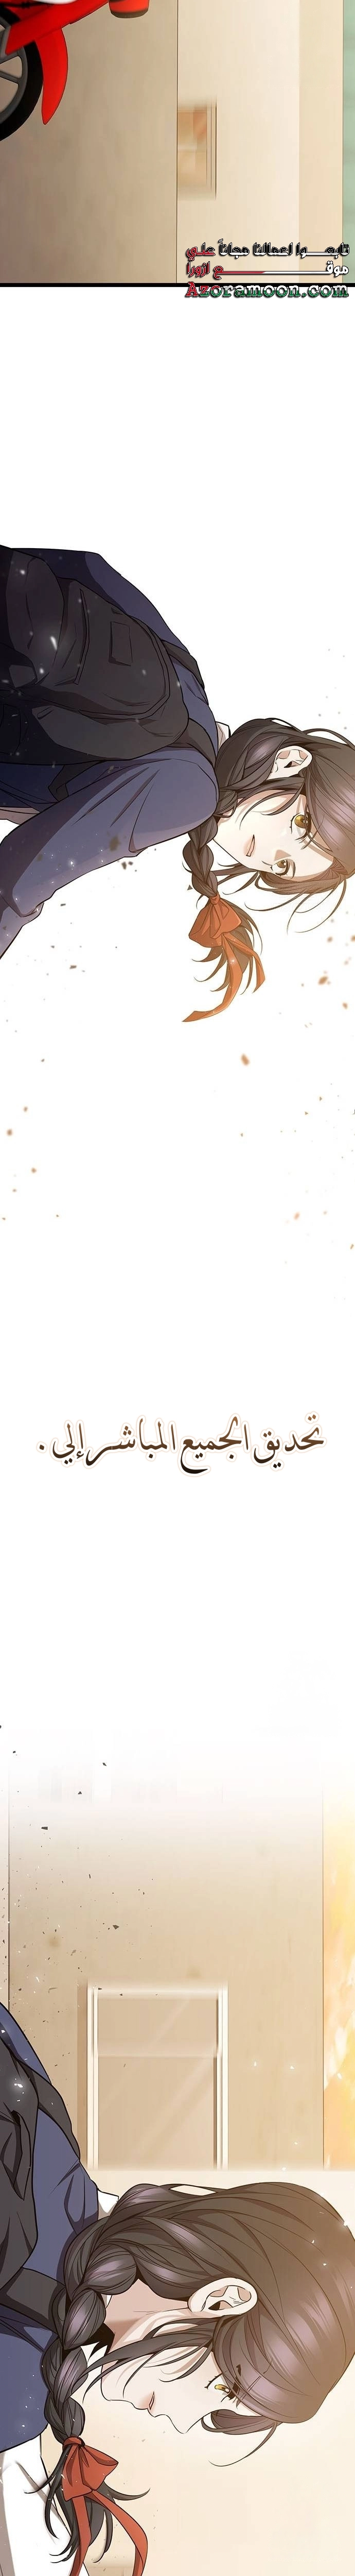 تابعــــوا اعمالنا مجاناً علـي
موقــــــــع ازورا
Azoramoon.com
تحديق الجميع المباشر إلي .